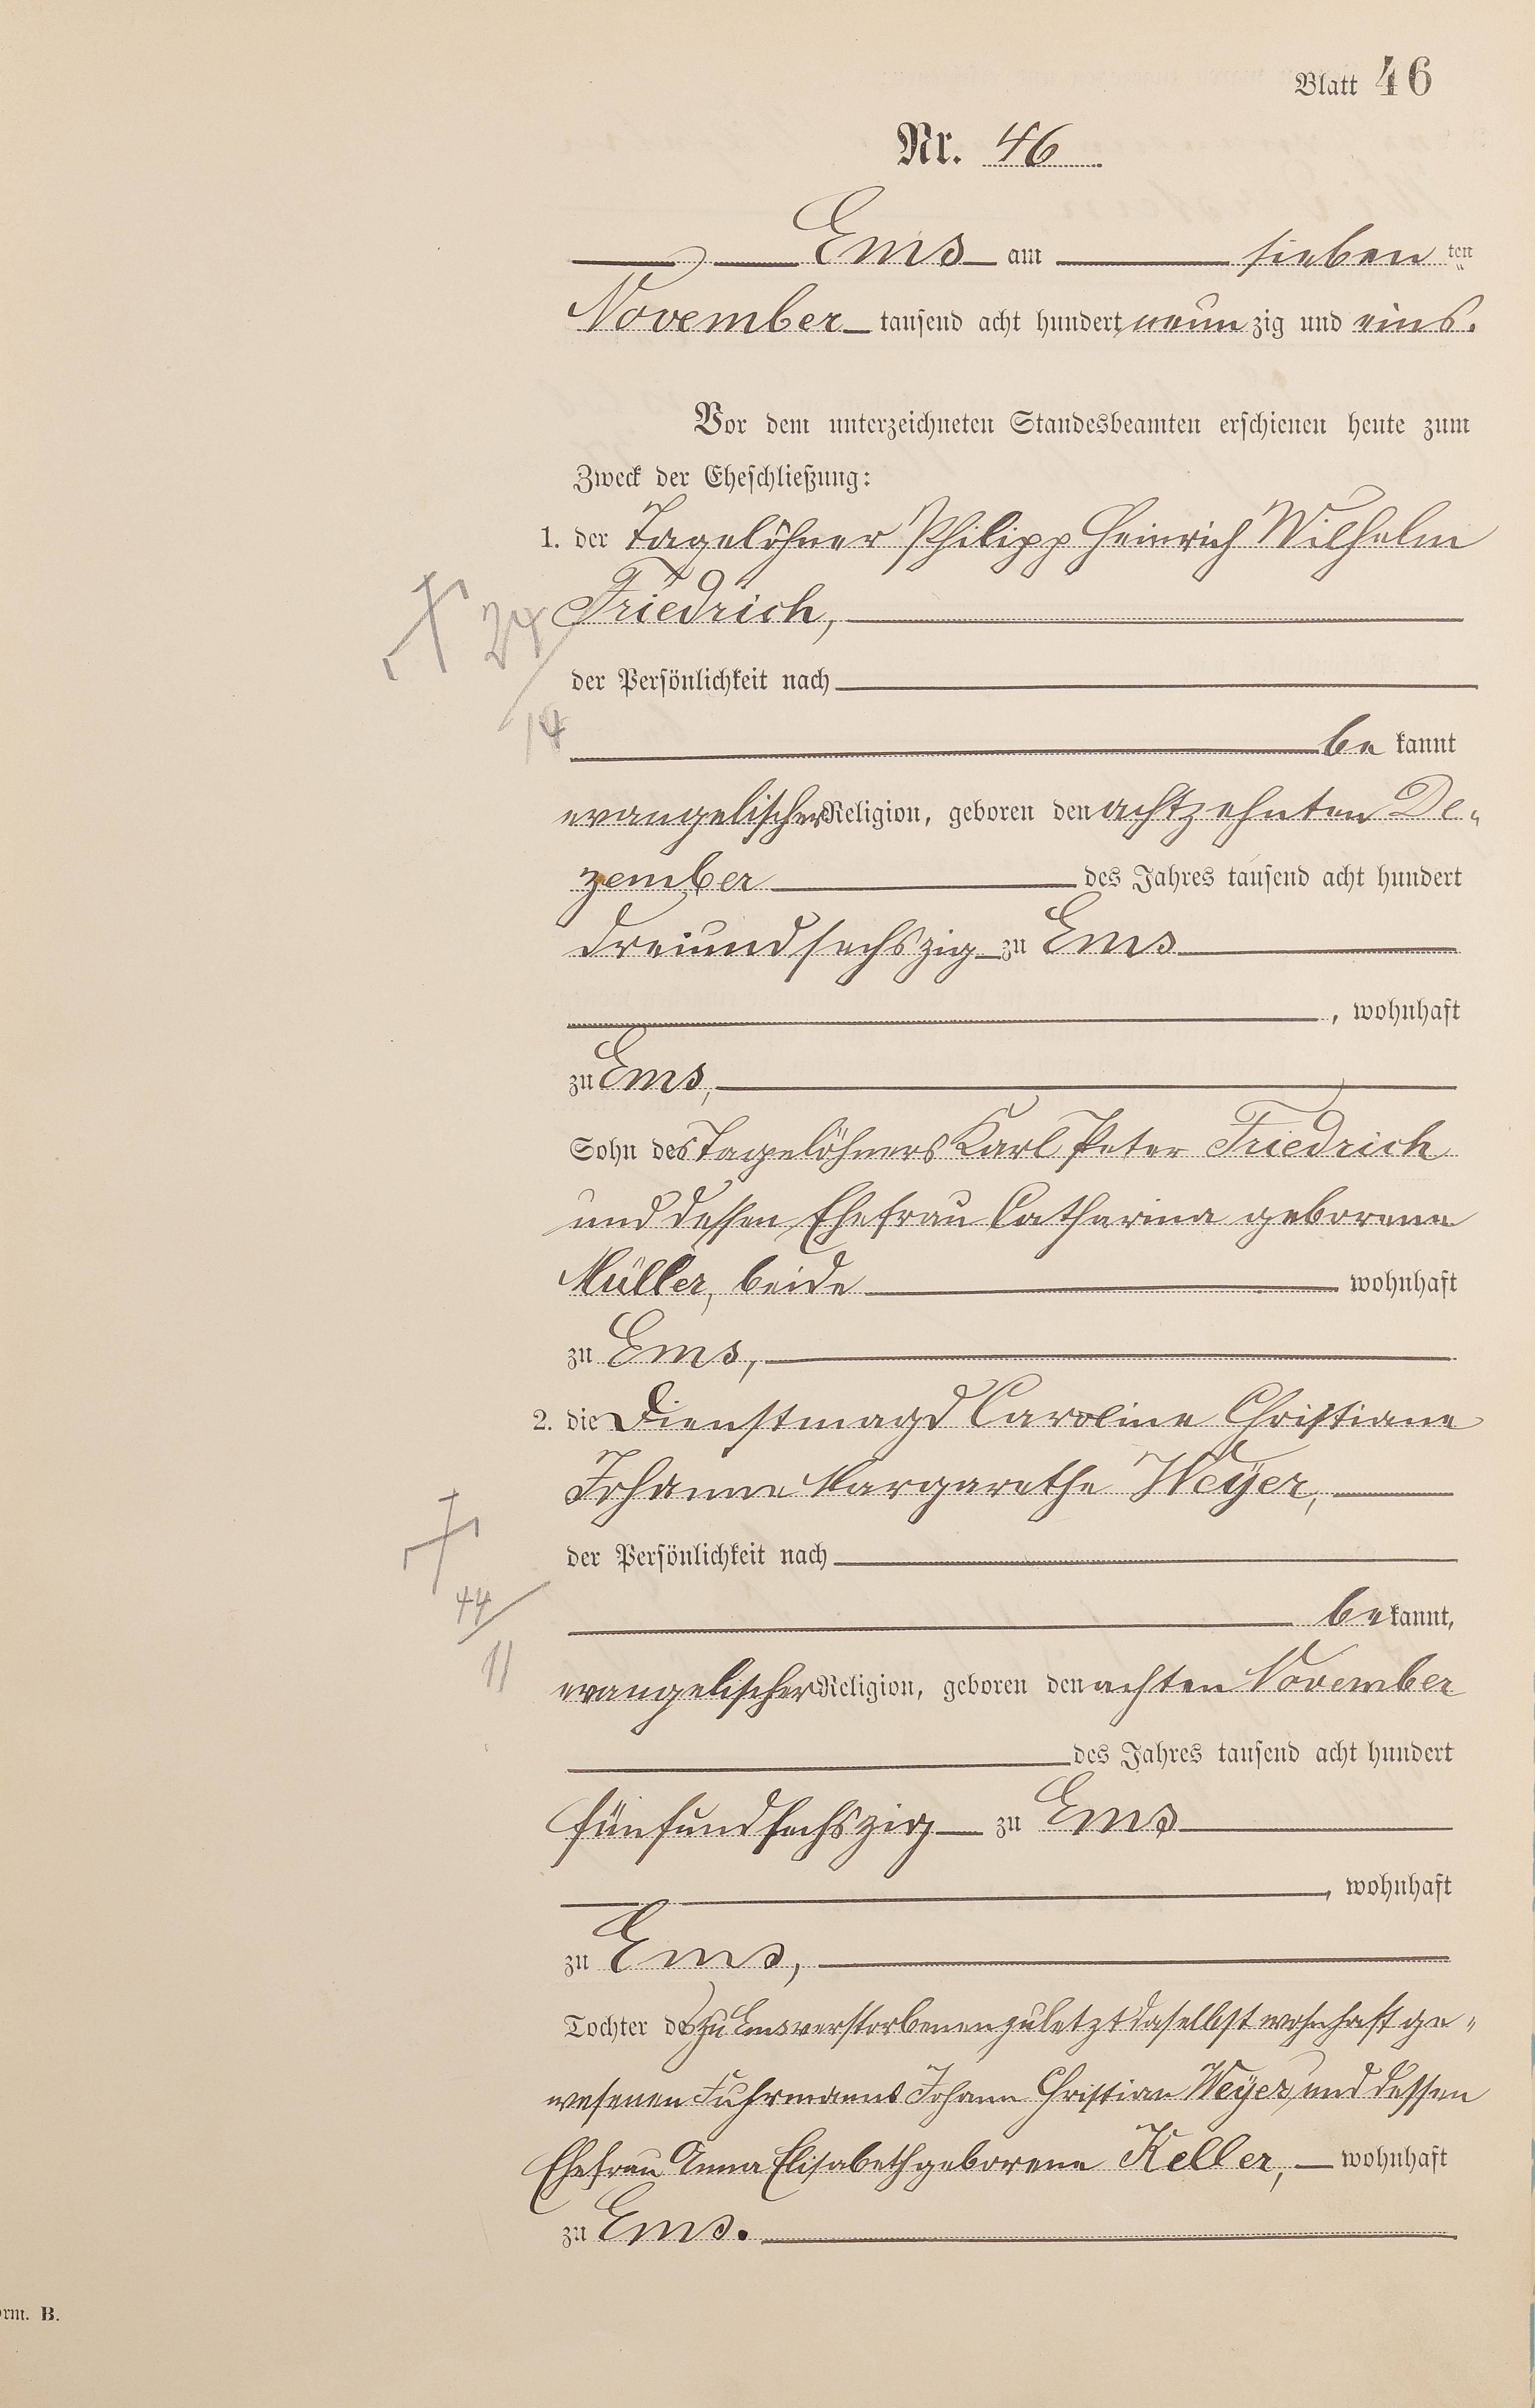 Blatt 46
Nr. 46
Ems am sieben ten
November tausend acht hundert neun zig und eins.
Vor dem unterzeichneten Standesbeamten erschienen heute zum
Zweck der Eheschließung:
1. der Tagelöhner Philipp Heinrich Wilhelm
Friedrich,
24/14
der Persönlichkeit nach
be kannt
evangelischer Religion, geboren den achtzehnten De-
zember des Jahres tausend acht hundert
dreiundsechszig zu Ems
, wohnhaft
zu Ems,
Sohn des Tagelöhners Karl Peter Friedrich
und dessen Ehefrau Catharina geborene
Müller, beide wohnhaft
zu Ems,
2. die Dienstmagd Caroline Christiane
Johanne Margarethe Weÿer,
der Persönlichkeit nach
44/11
be kannt,
evangelischer Religion, geboren den achten November
des Jahres tausend acht hundert
fünfundsechszig zu Ems
, wohnhaft
zu Ems,
Tochter des zu Ems verstorbenen zuletzt daselbst wohnhaft ge-
wesenen Fuhrmanns Johann Christian Weÿer, und dessen
Ehefrau Anna Elisabeth geborene Keller, wohnhaft
zu Ems.
orm. B.